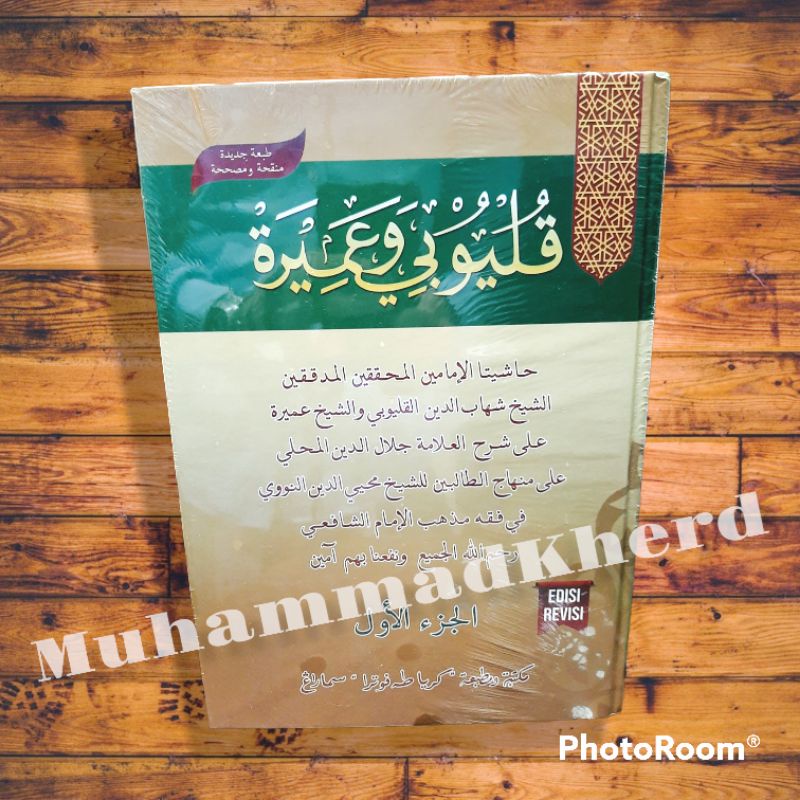 طبعة جديدة
منقحة ومصححة
قُلْيُوْبِي وَعَمِيْرَةْ
حاشيتا الإمامين المحققين المدققين
الشيخ شهاب الدين القليوبي والشيخ عميرة
على شرح العلامة جلال الدين المحلي
على منهاج الطالبين للشيخ محيي الدين النووي
في فقه مذهب الإمام الشافعي
رحم الله الجميع ونفعنا بهم آمين
MuhammadKherd
EDISI
REVISI
الجزء الأول
مكتبة ومطبعة "كريا طه فوترا" سماراڠ
PhotoRoom®